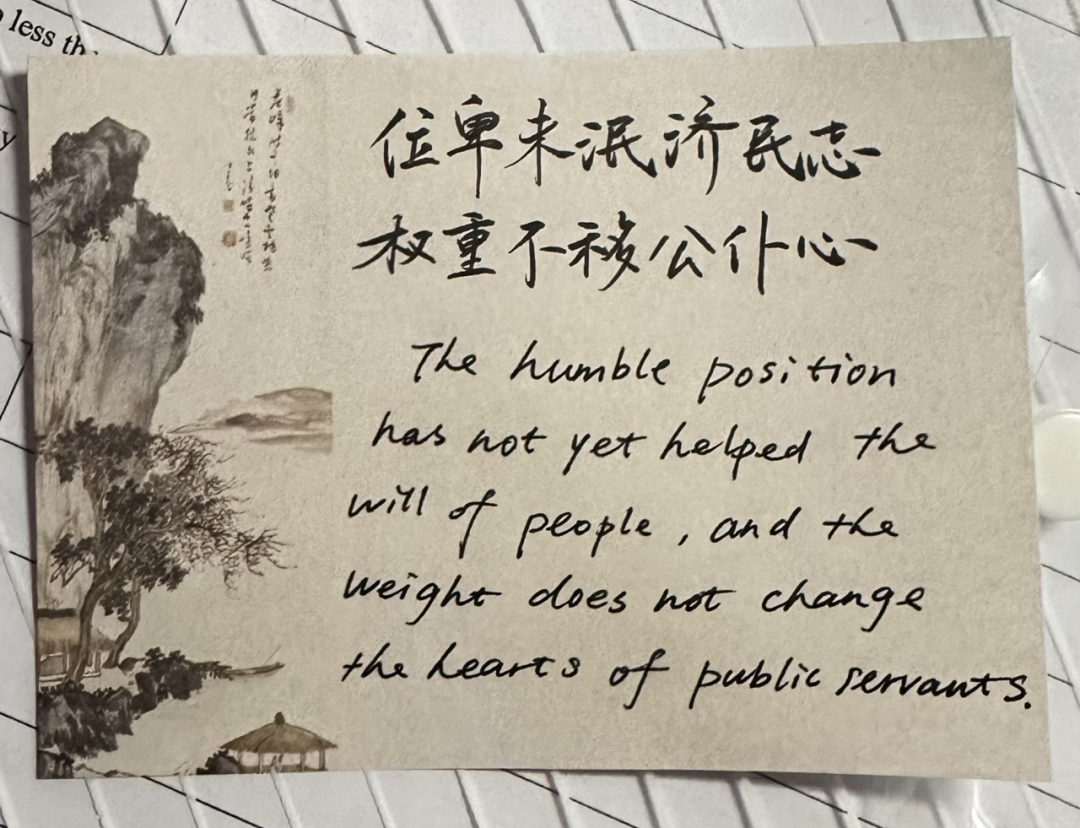 less th
y
位卑未泯济民志
权重不移公仆心
The humble position
has not yet helped the
will of people, and the
weight does not change
the hearts of public servants.